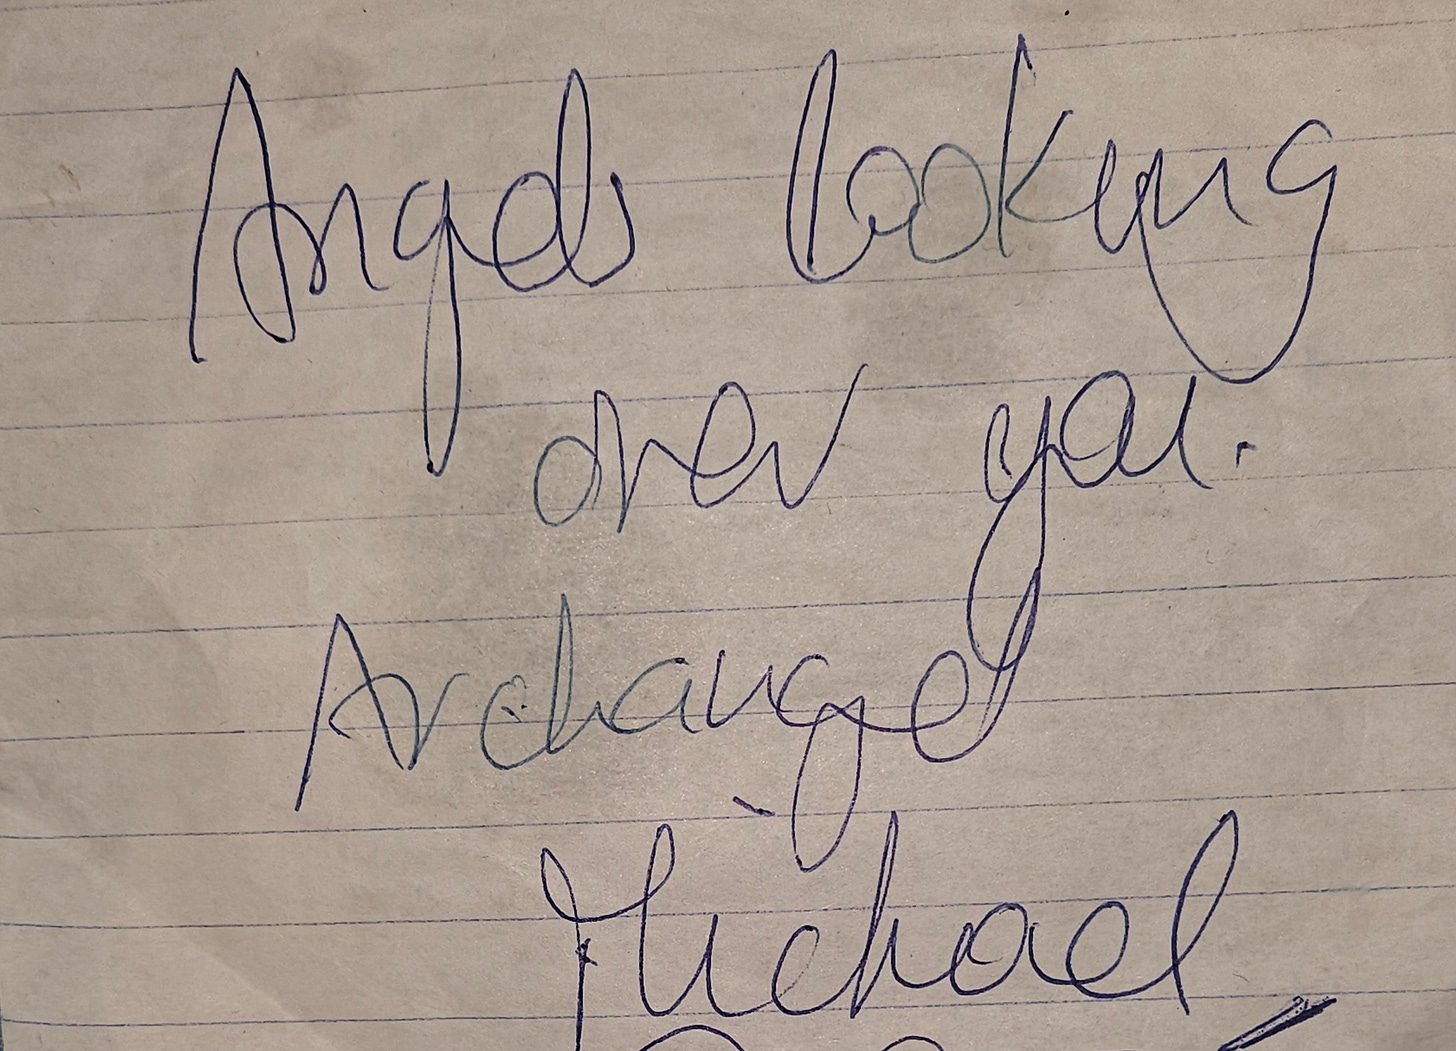 Angels looking
over you.
Archangel
Michael